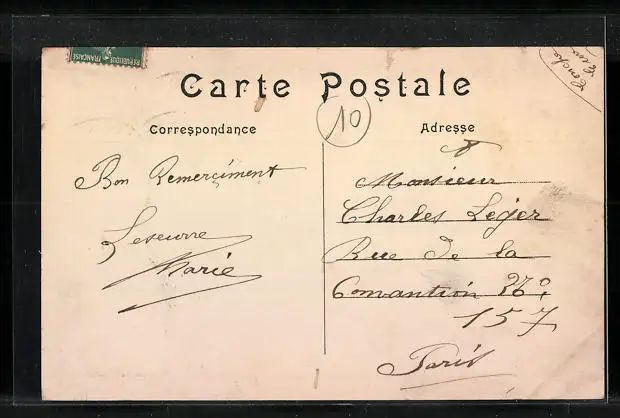 RÉPUBLIQUE FRANÇAISE
Carte Postale
10
Correspondance
Adresse
Bon Remerçiment
Leseurre
Marie
Monsieur
Charles Léger
Rue de la
Convantion No
157
Paris